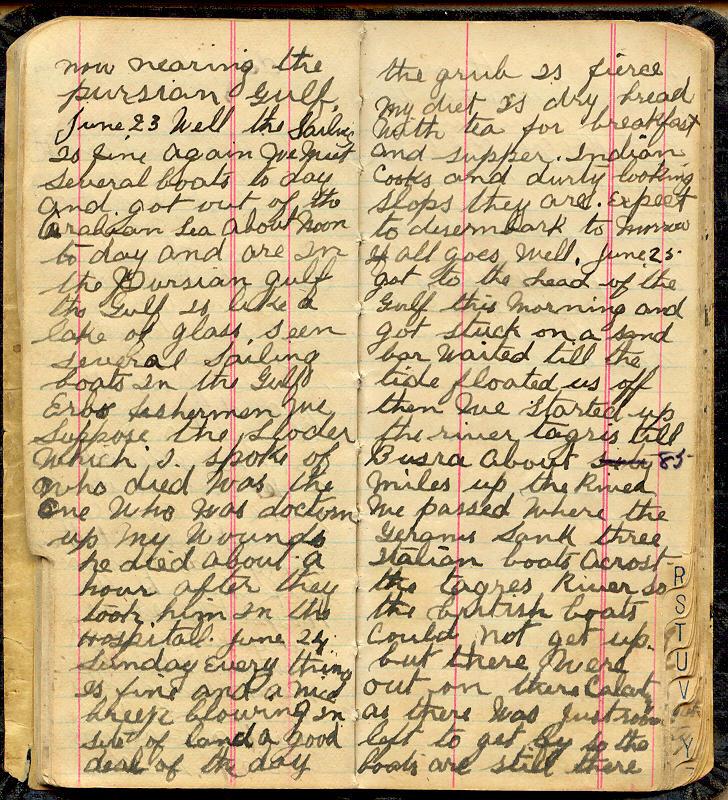 now nearing the
pursian Gulf,
June 23 Well the Sailing
is fine again We Meet
several boats to day
and got out of the
Arabian Sea About Noon
to day and are in
the Pursian gulf
the Gulf is like a
lake of glass, seen
several Sailing
boats in the Gulf
Erbs fishermen We
Suppose the Sloder
Which I spoke of
who died Was the
One Who Was doctorn
up My Wounds
he died about a
hour after they
took him in the
Hospitall. June 24
Sunday Every thing
is fine and a nice
breeze blowing in
site of land a good
deal of the day
the grub is fierce
My diet is dry bread
With tea for breakfast
and supper. Indian
Cooks and durty looking
Slops they are. Expect
to disembark to morrow
if all goes Well. June 25
got to the head of the
Gulf this Morning and
got stuck on a sand
bar Waited till the
tide floated us off
then We Started up
the river tagris till
Busra About 85
Miles up the River
We passed Where the
Germans Sank three
Italian boats Acrost
the tagres River so
the british boats
Could Not get up.
but there Were
out on there Calat
as there Was Just room
left to get by so the
boats are still there
R
S
T
U
V
Y